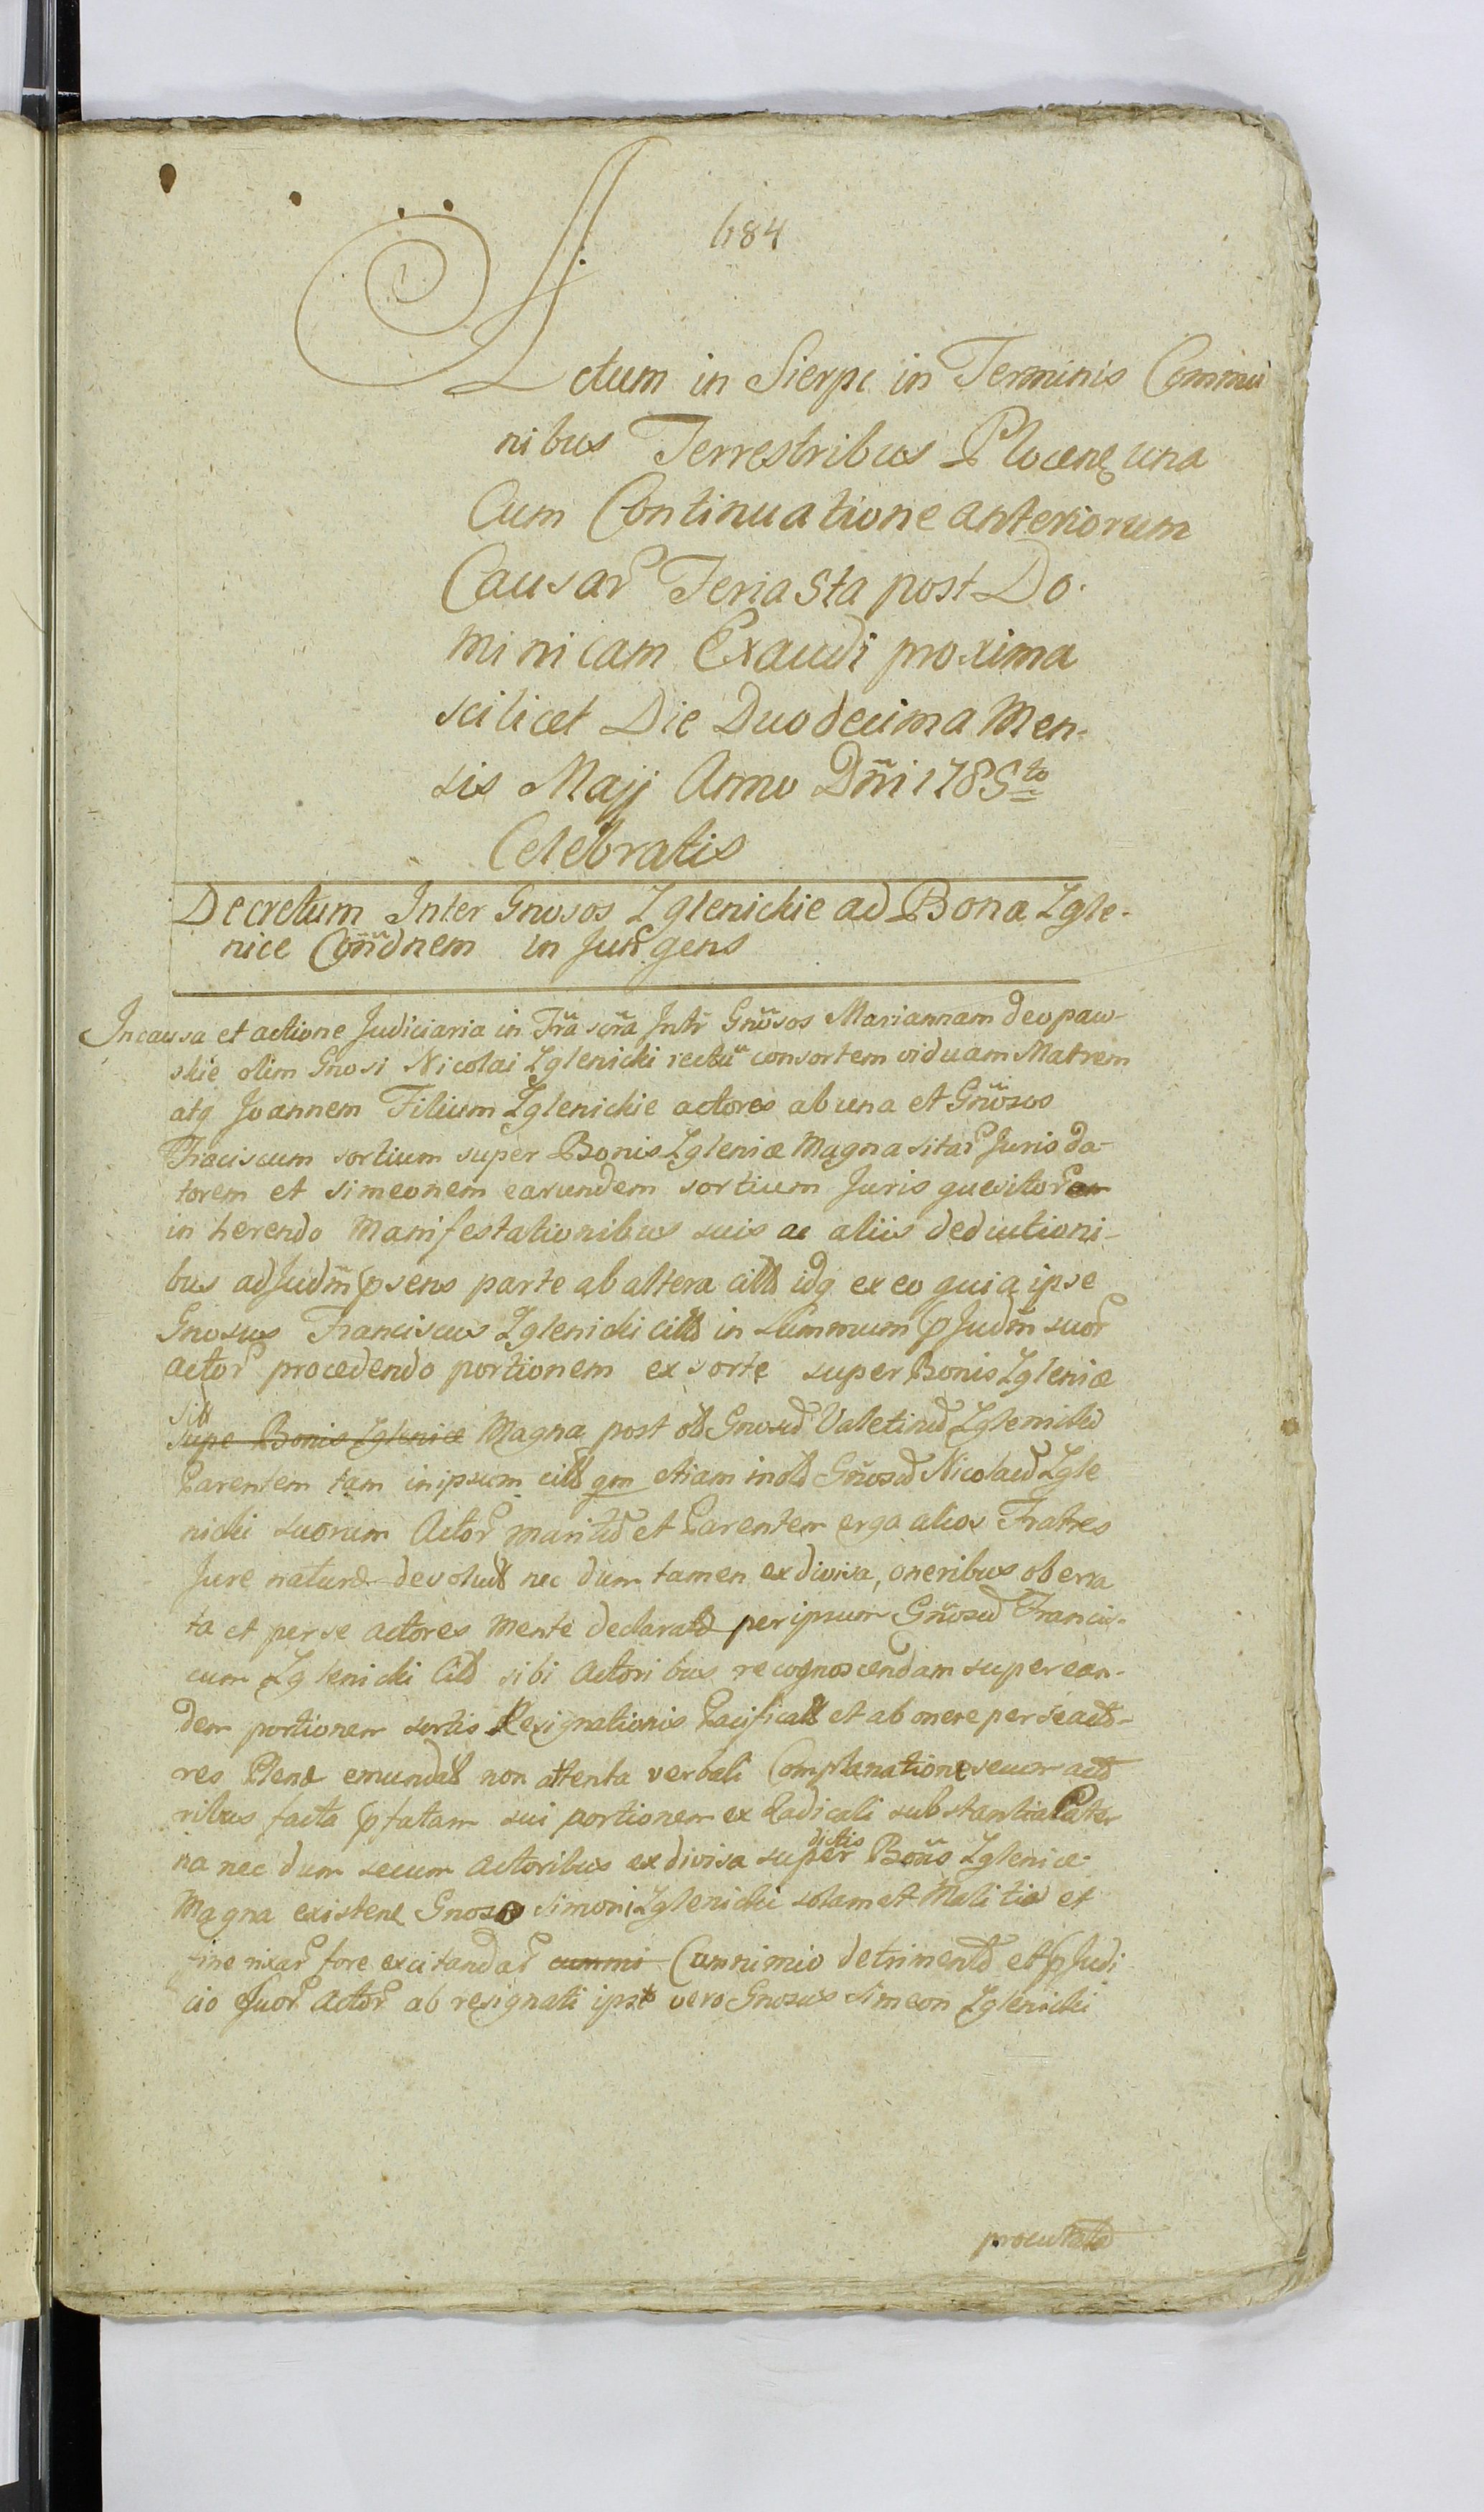 684
Actum in Sierpc in Terminis Commu
nibus Terrestribus Plocens una
Cum Continuatione anteriorum
Causar Feria 5ta post Do-
minicam Exaudi proxima
scilicet Die Duodecima Men-
sis Maji Anno Dñi 1785to
Celebratis
Decretum Inter Gnosos Zglenickie ad Bona Zgle-
nice Condnem in Jungens
In causa et actione Judiciaria in Fra scra Intr Gnosos Mariannam deopaw-
skie olim Gnosi Nicolai Zglenicki rectu consortem viduam Matrem
atq Joannem Filium Zglenickie actores ab una et Gnosos
Fraciscum sortium super Bonis Zglenice Magna sitar Juris da-
torem et simeonem earundem sortium Juris quesitor
in herendo Manifestationibus suis ac aliis deductioni-
bus ad Judm psens parte ab altera citt idq ex eo quia ipse
Gnosus Franciscus Zglenicki citt in summum pJudm suor
actor procedendo portionem ex sorte super Bonis Zglenice
sitt
Supe Bonis Zglenice Magna post ol Gnosu Valetinu Zglenicki
Parentem tam in ipsum citt qm etiam in ol Gnosu Nicolau Zgle
nicki suorum Actor maritu et Parentem erga alios Fratres
Jure nature devolut nec dum tamen ex divisa, oneribus oberra
ta et per se actores mente declarata per ipsum Gnosu Francis-
cum Zglenicki Citt sibi Actoribus recognoscendam super ean-
dem portionem sortis Resignationis Pacificatt et ab onere per se acto-
res Plene emundatt non attenta verbali Complanatione secum acto
ribus facta pfatam sui portionem ex Radicali substantia Pater
na nec dum secum Actoribus ex divisa super dictis Bonis Zglenice
Magna existen Gnoso Simoni Zglenicki solam et Malitia et
fine rixar fore excitandar cummi Cum nimio detrimento et pJudi
cio suor Actor ab resignati ipse vero Gnosus Simeon Zglenicki